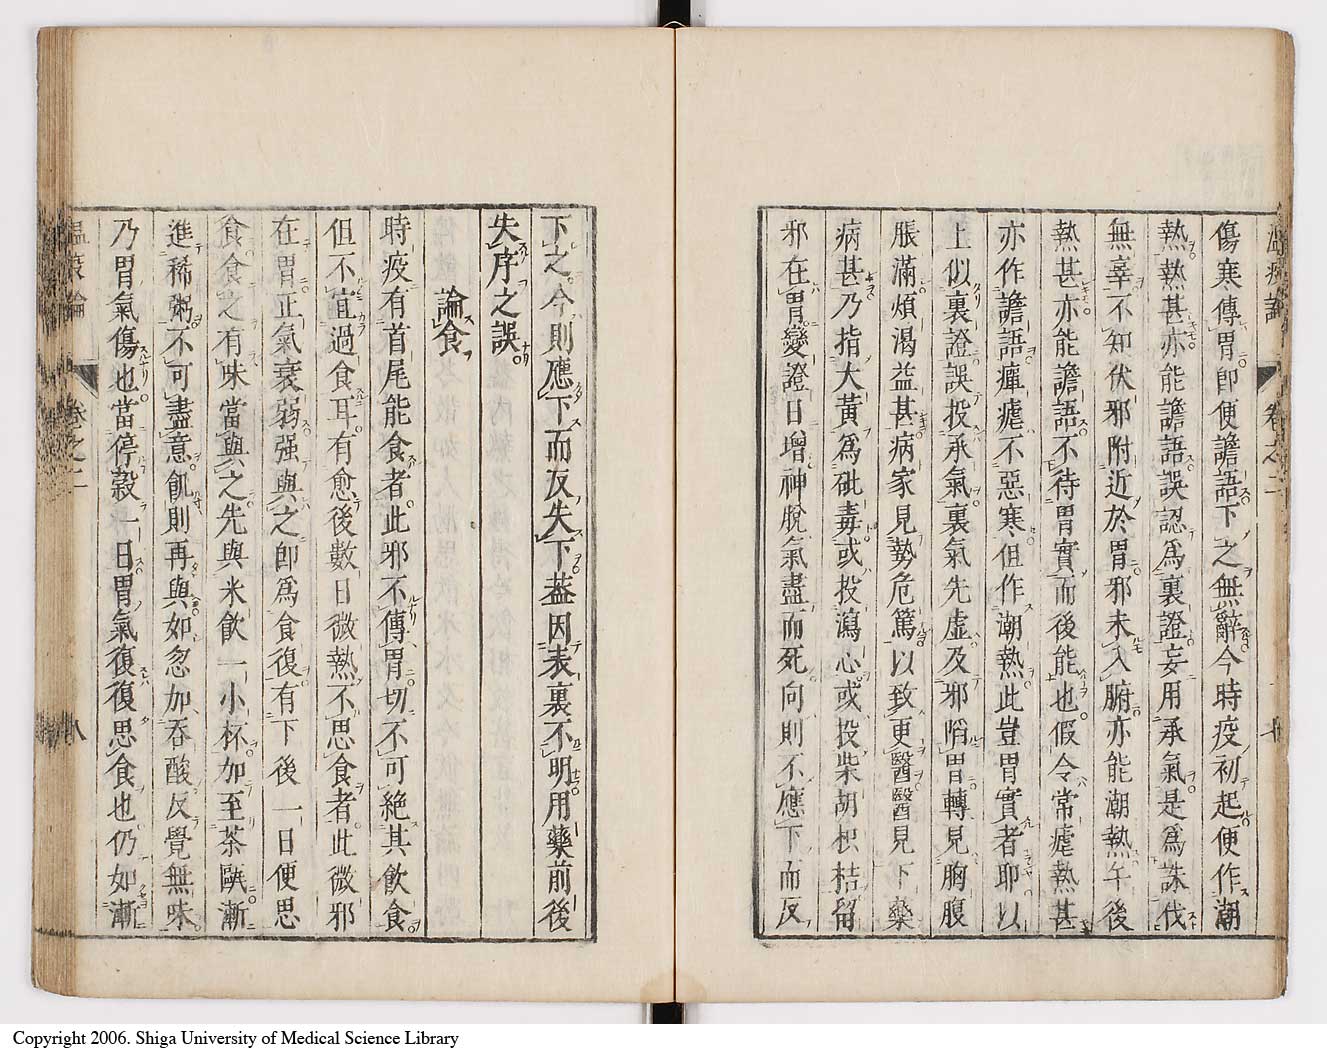 傷寒傳胃即便譫語下之無辭今時疫初起便作潮
熱熱甚亦能譫語誤認爲裏證妄用承氣是爲誅伐
無辜不知伏邪附近於胃邪未入腑亦能潮熱午後
熱甚亦能譫語不待胃實而後能也假令常瘧熱甚
亦作譫語瘅瘧不惡寒但作潮熱此豈胃實者耶以
上似裏證誤投承氣裏氣先虛及邪陷胃轉見胸腹
脹滿煩渴益甚病家見勢危篤以致更醫醫見下藥
病甚乃指大黃爲砒毒或投瀉心或投柴胡枳桔留
邪在胃變證日增神脫氣盡而死向則不應下而反
下之今則應下而反失下葢因表裏不明用藥前後
失序之誤
論食
時疫有首尾能食者此邪不傳胃切不可絕其飲食
但不宜過食耳有愈後數日微熱不思食者此微邪
在胃正氣衰弱强與之即爲食復有下後一日便思
食食之有味當與之先與米飲一小杯加至茶甌漸
進稀粥不可盡意飢則再與如忽加吞酸反覺無味
乃胃氣傷也當停穀一日胃氣復復思食也仍如漸
溫疫論
卷之二
八
Copyright 2006. Shiga University of Medical Science Library